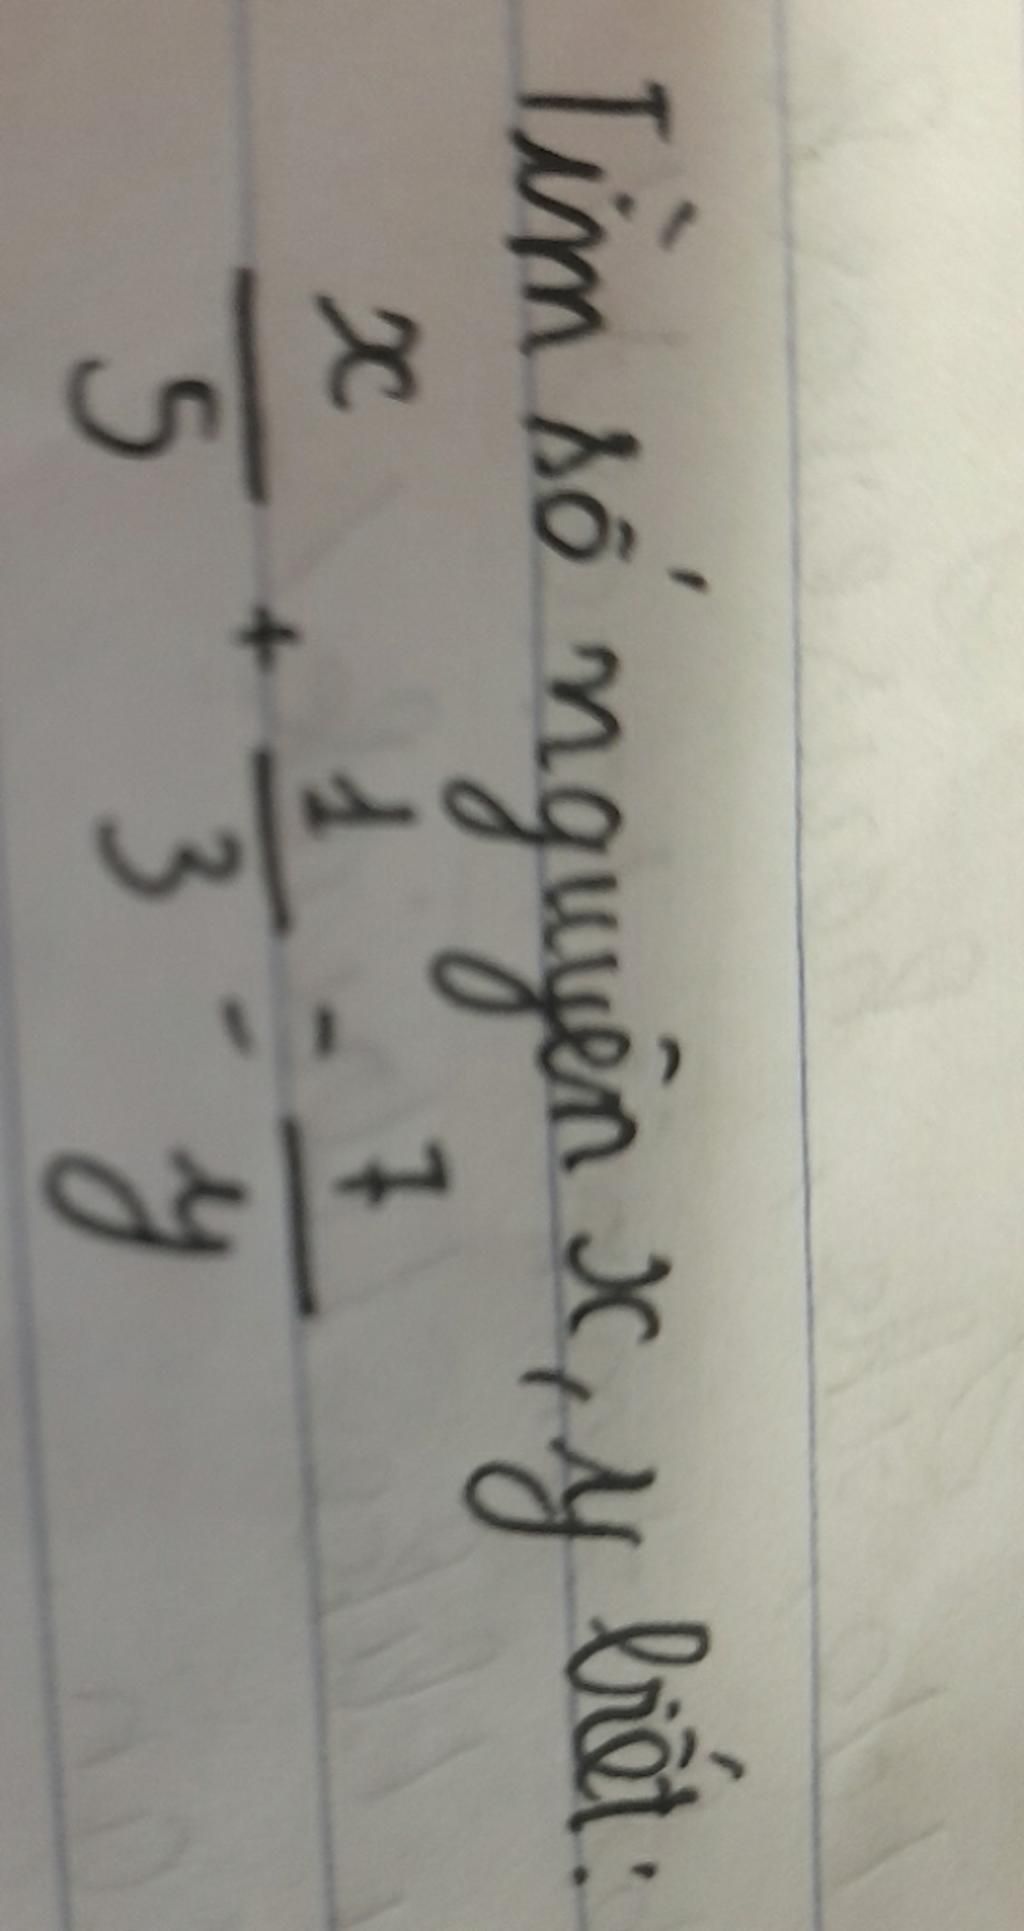 Tìm số nguyên x, y biết:
x/5 + 1/3 = 7/y